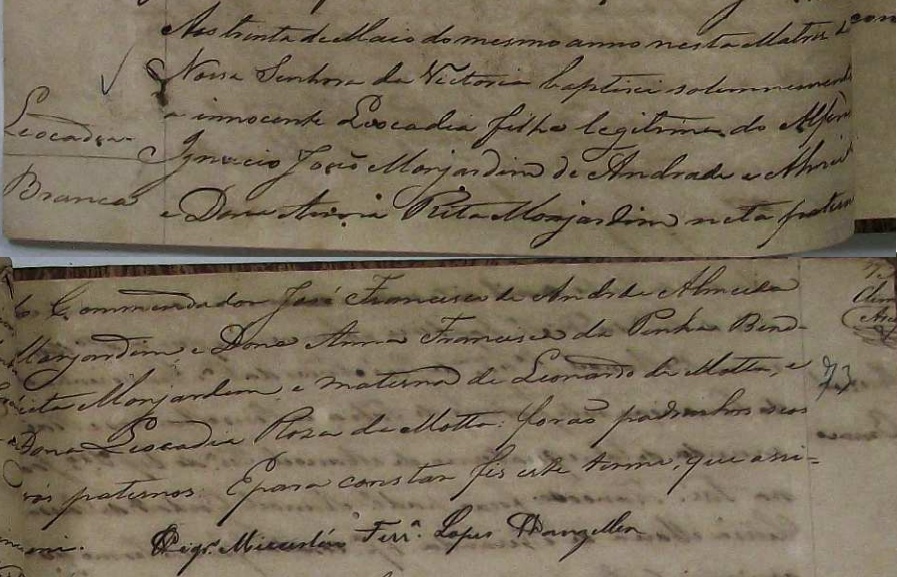 Aos trinta de Maio do mesmo anno nesta Matriz de
Nossa Senhora da Victoria baptisei solemnemente
a innocente Leocadia filha legitima do Alferes
Leocadia
Ignacio João Monjardim de Andrade e Almeida
Branca
e Dona Maria Rita Monjardim neta paterna
do Commendador José Francisco de Andrade Almeida
Monjardim e Dona Anna Francisca da Penha Bene-
dicta Monjardim e materna de Leonardo da Motta, e
73
Dona Leocadia Roza da Motta: forão padrinhos seos
vós paternos. E para constar fis este termo, que assi-
Vigr.º Ferr.ª Lopes Wanzeller